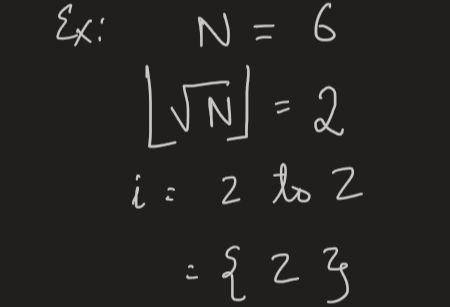 Ex: N = 6
⌊√N⌋ = 2
i = 2 to 2
= { 2 }